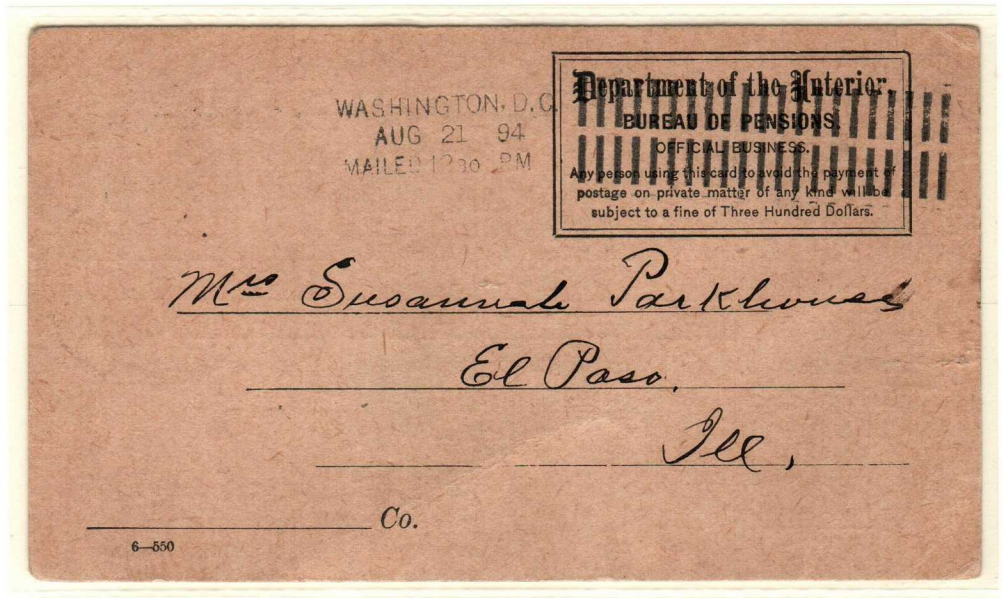 WASHINGTON, D.C.
AUG 21 94
MAILED 1230 PM
Department of the Interior,
BUREAU OF PENSIONS.
OFFICIAL BUSINESS.
Any person using this card to avoid the payment of
postage on private matter of any kind will be
subject to a fine of Three Hundred Dollars.
Mrs Susannah Parkhouse
El Paso,
Ill,
Co.
6—550